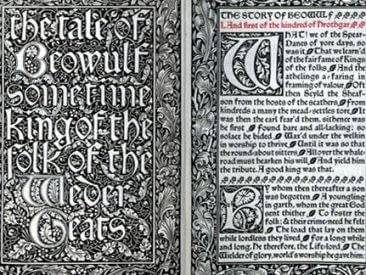 the tale of
Beowulf
sometime
king of the
folk of the
Weder
Geats
THE STORY OF BEOWULF
I. And first of the kindred of Hrothgar.
WHAT! we of the Spear-
Danes of yore days, so
was it That we learn'd
of the fair fame of Kings
of the folks, And the
athelings a-faring in
framing of valour. Oft
then Scyld the Sheaf-
son from the hosts of the scathers, From
kindreds a many the mead-settles tore; It
was then the earl fear'd them, sithence was
he first Found bare and all-lacking; so
solace he bided, Wax'd under the welkin
in worship to thrive, Until it was so that
the round-about sitters, All over the whale-
road must hearken his will, And yield him
the tribute. A good king was that.
By whom then thereafter a son
was begotten, A youngling
in garth, whom the great God
sent thither To foster the
folk; & their crime-need he felt
The load that lay on them
while lordless they lived, For a long while
and long. He therefore, the Life-lord, The
Wielder of glory, world's worship he gave him: